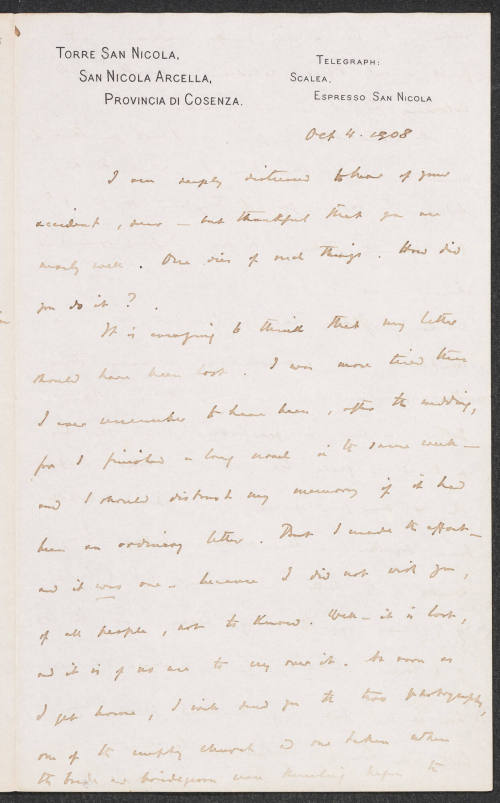 TORRE SAN NICOLA,
SAN NICOLA ARCELLA,
PROVINCIA DI COSENZA.
TELEGRAPH:
SCALEA,
ESPRESSO SAN NICOLA
Oct 4. 1908
I am deeply distressed to hear of your
accident, dear — but thankful that you are
nearly well. One dies of such things. How did
you do it?
It is annoying to think that my letter
should have been lost. I was more tired than
I ever remember to have been, after the wedding,
for I finished a long novel in the same week —
and I should distrust my memory if it had
been an ordinary letter. But I made the effort —
and it was one — because I did not wish you,
of all people, not to know. Well — it is lost,
and it is of no use to cry over it. As soon as
I get home, I will send you the two photographs,
one of the empty church and one taken when
the bride and bridegroom were kneeling before the